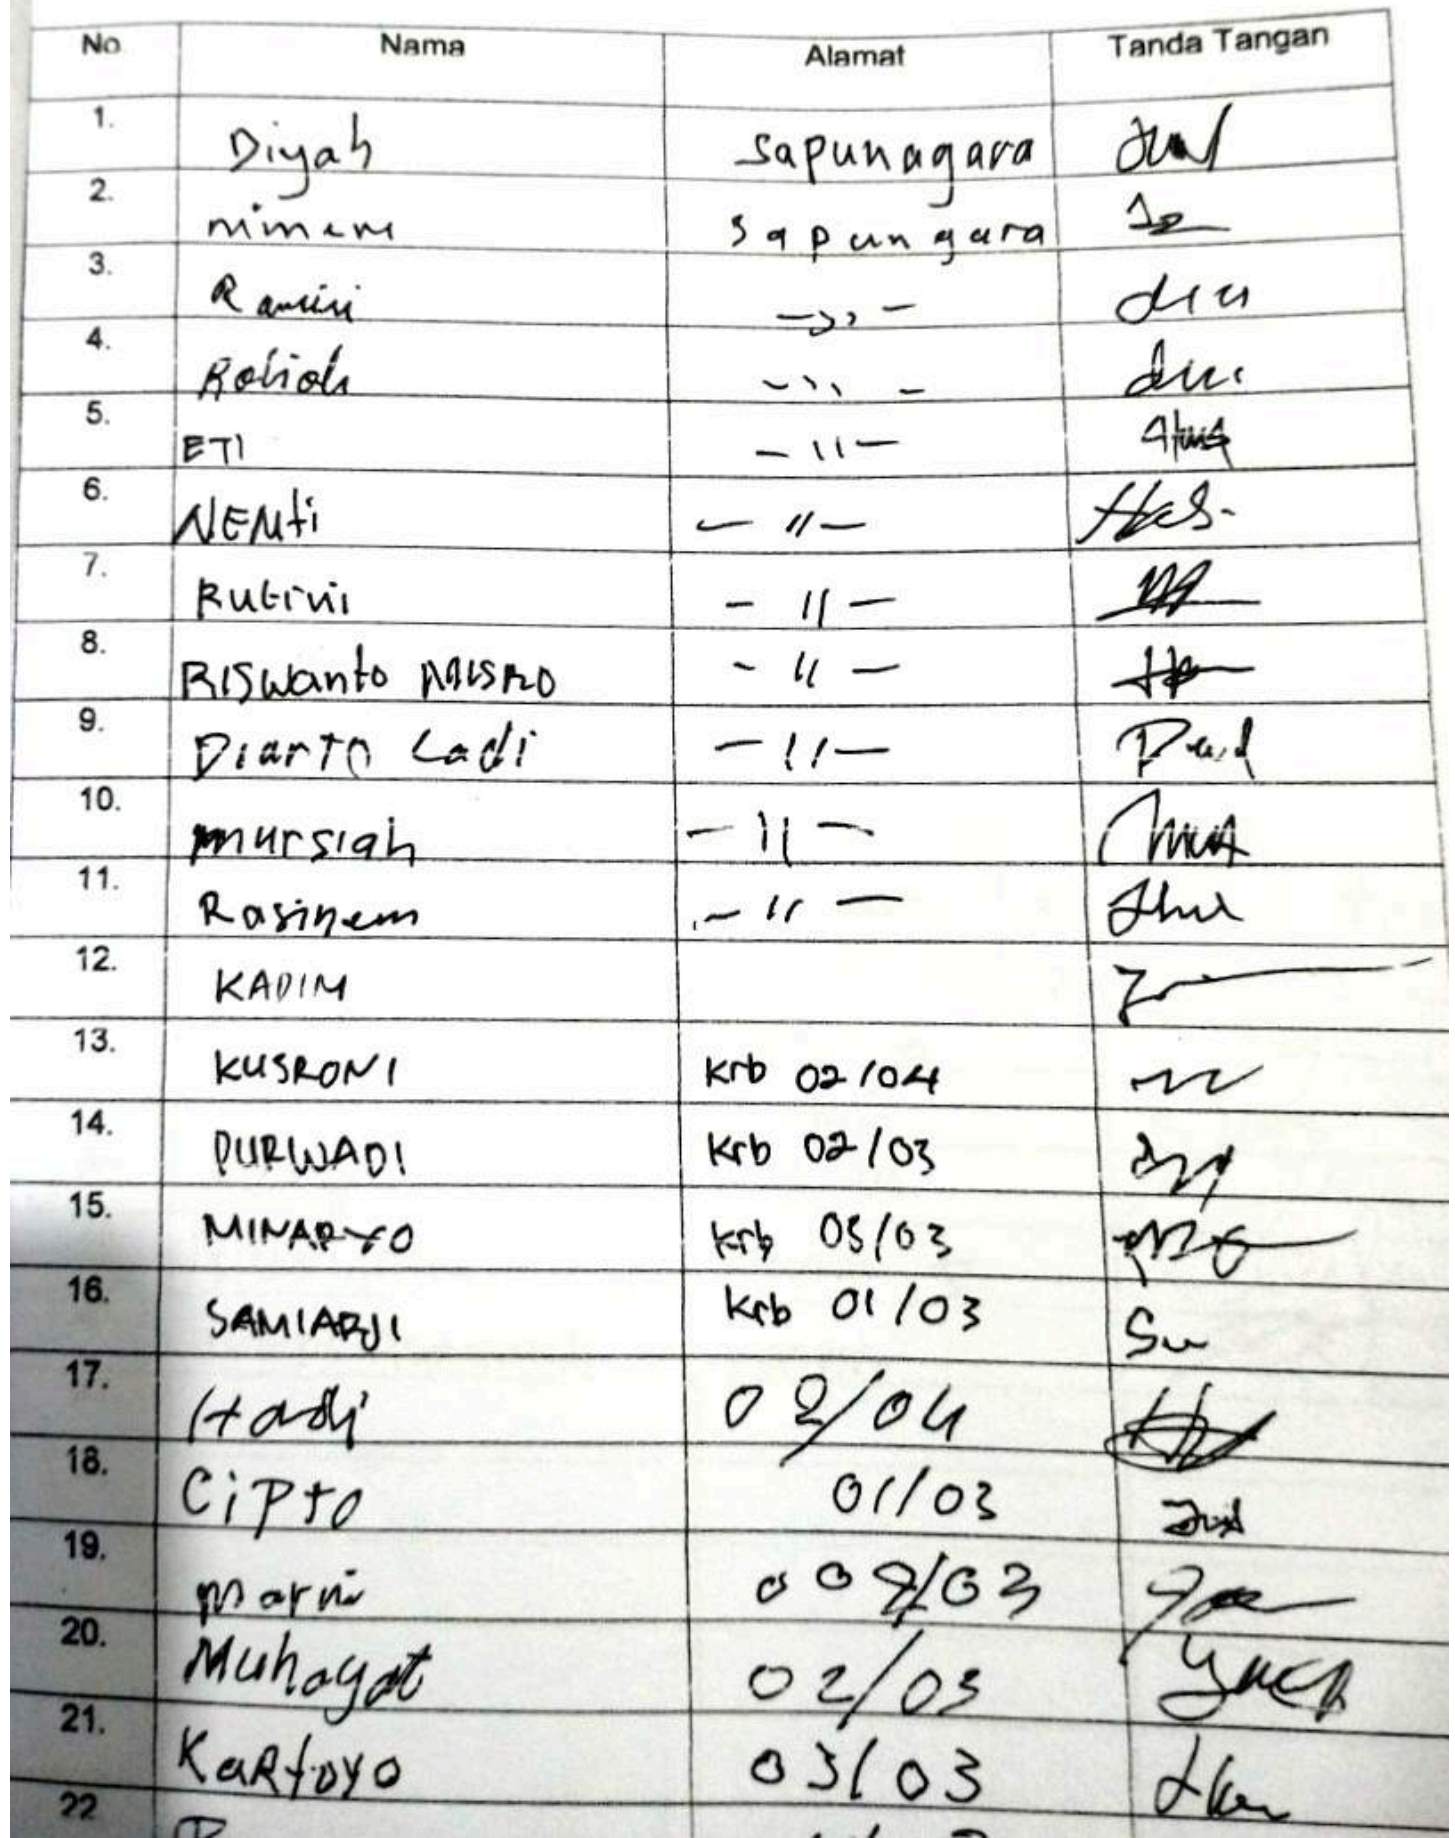 No Nama Alamat Tanda Tangan
1. Diyah Sapunagara
2. nimem Sapungara
3. Ramini -,,-
4. Robiah -,,-
5. ETI -"-
6. NEMti -"-
7. Rutini -"-
8. RISwanto MISRO -"-
9. Diarto Ladi -"-
10. mursiah -"-
11. Rasinem -"-
12. KADIM
13. KUSRONI krb 02/04
14. PURWADI krb 02/03
15. MINARYO krb 05/03
16. SAMIARJI krb 01/03
17. Hadi 02/04
18. Cipto 01/03
19. marni 002/03
20. Muhayat 02/03
21. KaRtoyo 03/03
22